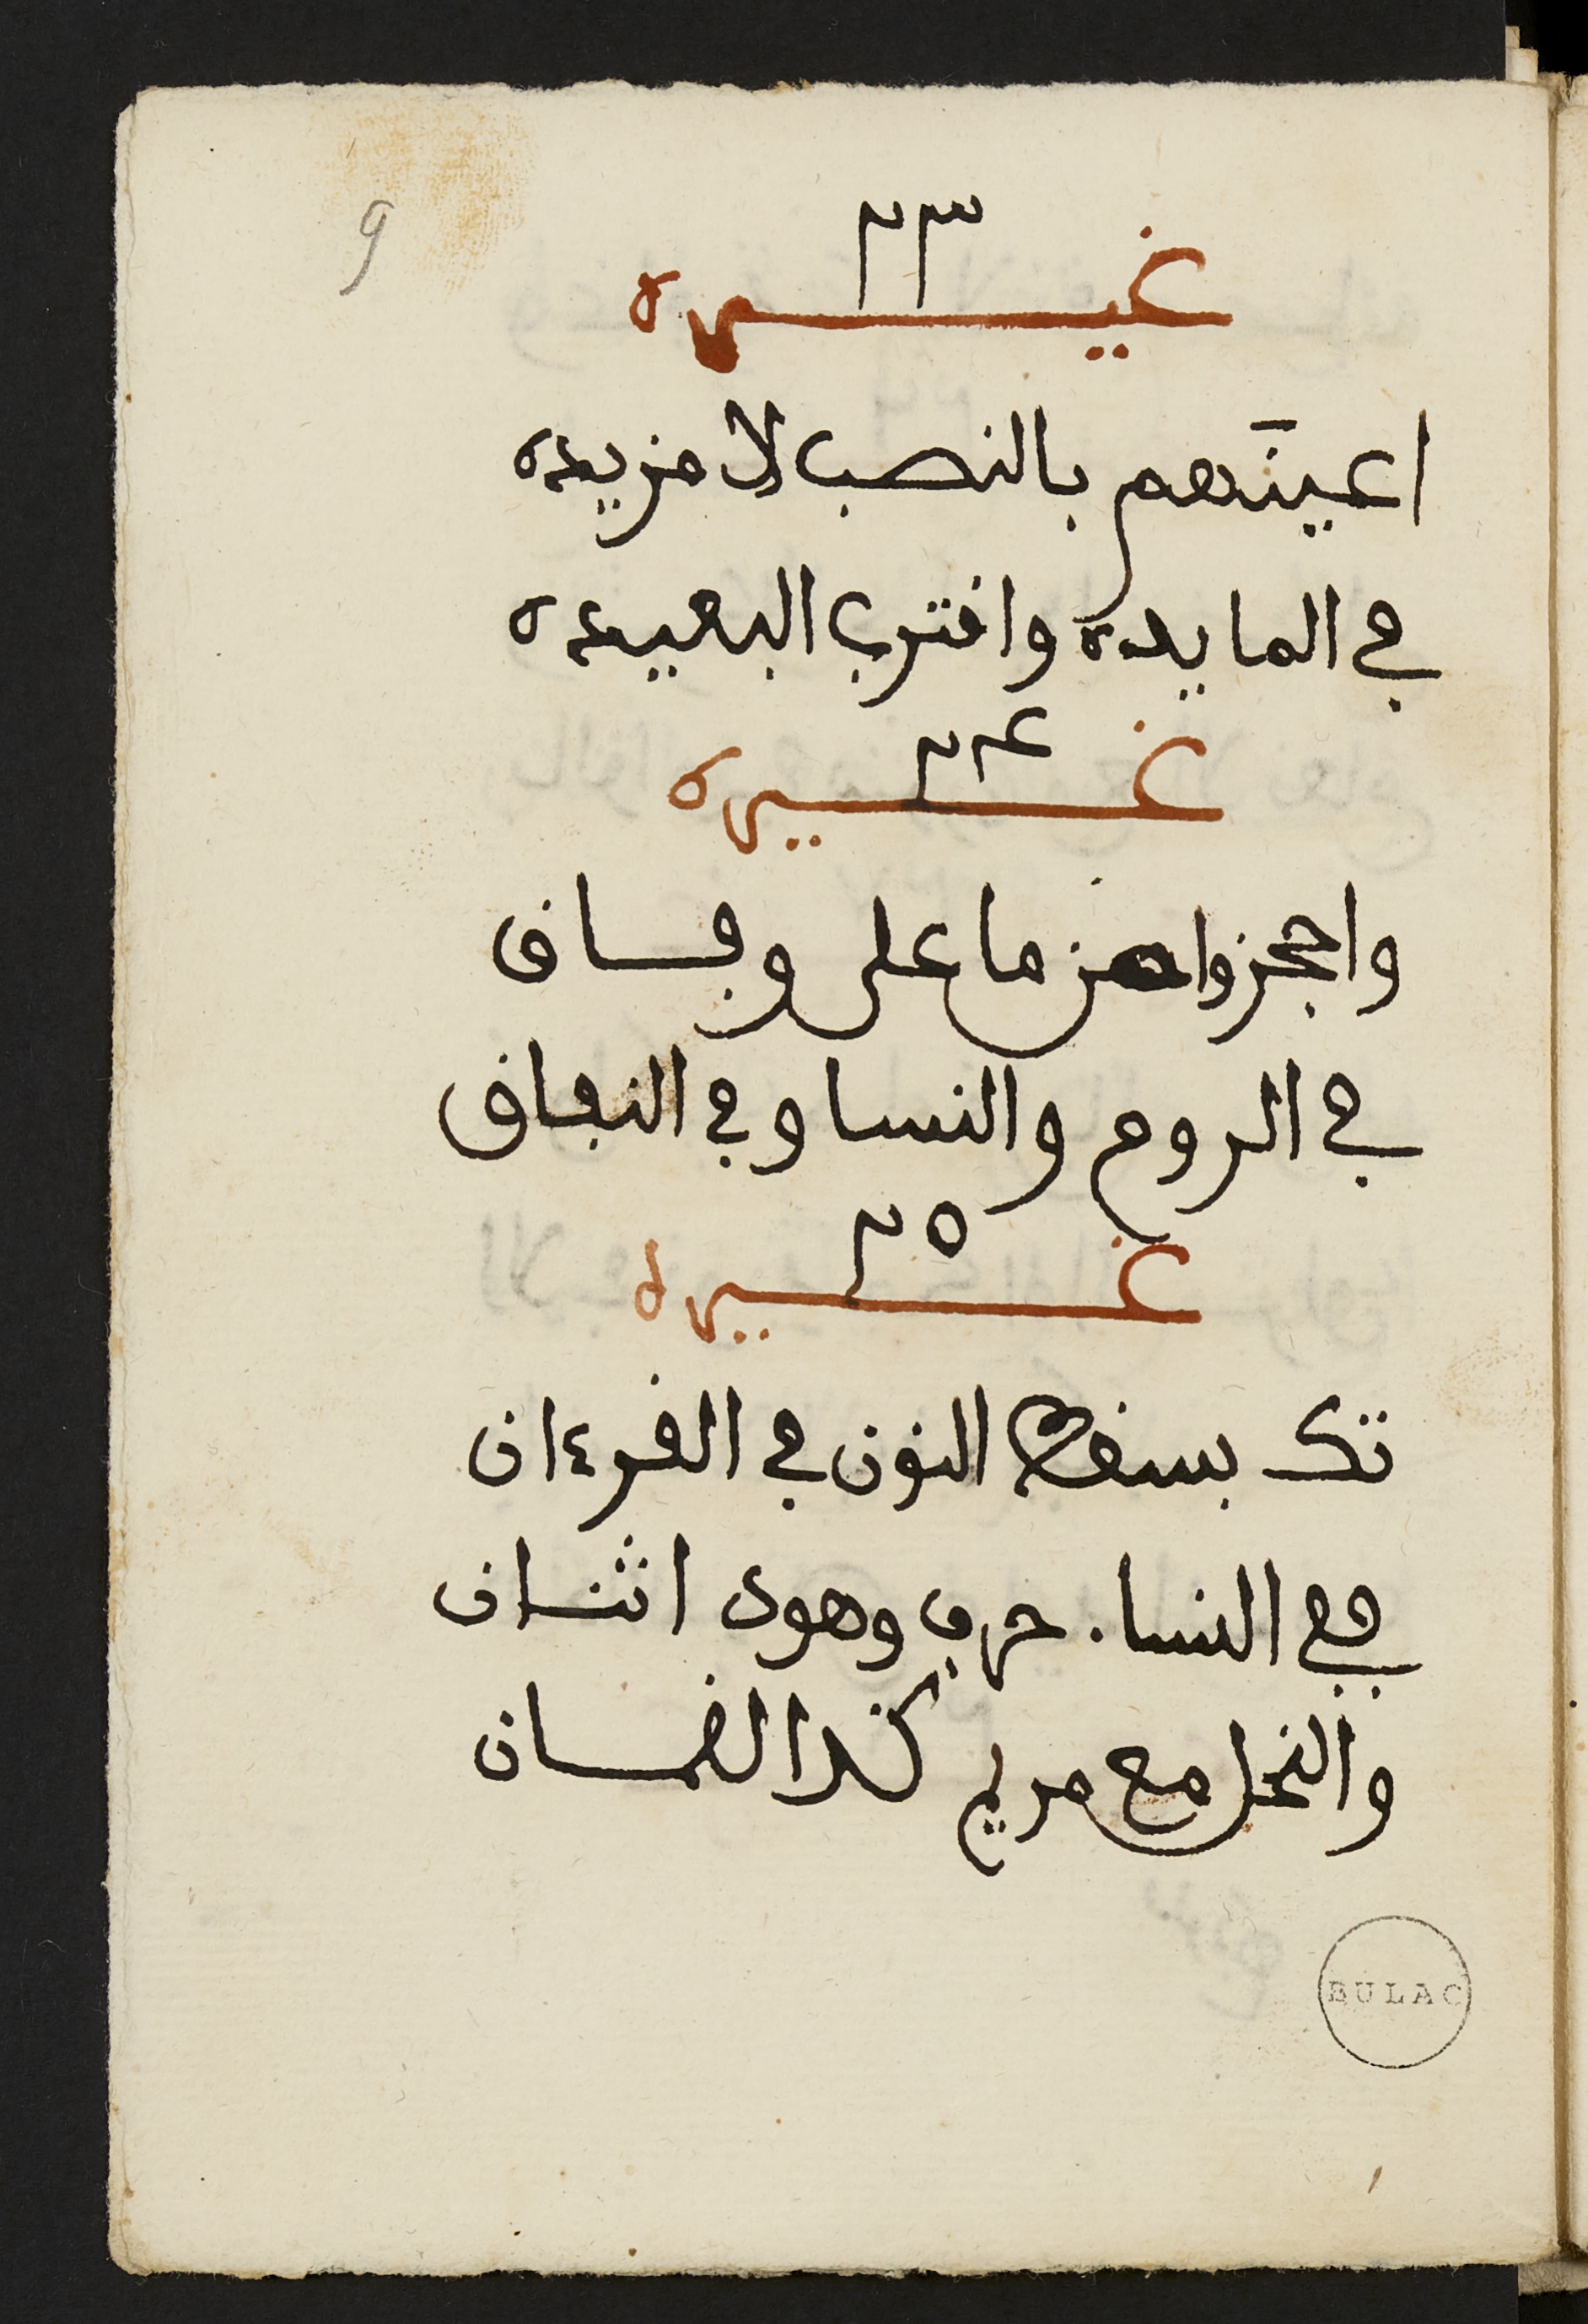 9
٢٣
غيره
اعينَهم بالنصب لا مزيده
في المايده واقترب البعيده
٢٤
غيره
واحجزوا من ما على وفاق
في الروم والنسا وفي النفاق
٢٥
غيره
تك بسقط النون في القرءان
ففي النسا حرف وهود اثنان
والنحل مع مريم لقمان
BULAC